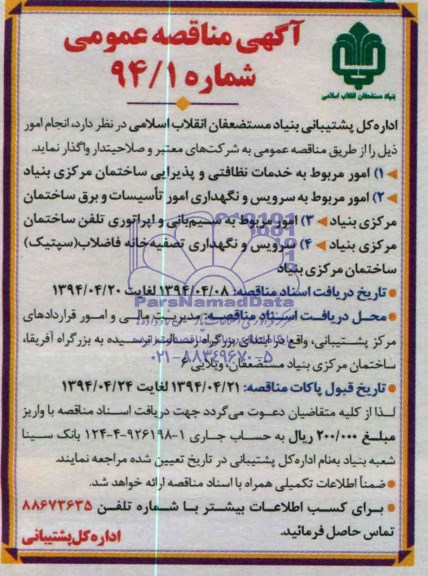 آگهی مناقصه عمومی
شماره ۹۴/۱
بنیاد مستضعفان انقلاب اسلامی
اداره کل پشتیبانی بنیاد مستضعفان انقلاب اسلامی در نظر دارد، انجام امور
ذیل را از طریق مناقصه عمومی به شرکت‌های معتبر و صلاحیتدار واگذار نماید.
۱) امور مربوط به خدمات نظافتی و پذیرایی ساختمان مرکزی بنیاد
۲) امور مربوط به سرویس و نگهداری امور تأسیسات و برق ساختمان
مرکزی بنیاد ۳) امور مربوط به سیم‌بانی و اپراتوری تلفن ساختمان
مرکزی بنیاد ۴) سرویس و نگهداری تصفیه‌خانه فاضلاب (سپتیک)
ساختمان مرکزی بنیاد
• تاریخ دریافت اسناد مناقصه: ۱۳۹۴/۰۴/۰۸ لغایت ۱۳۹۴/۰۴/۲۰
ParsNamadData
• محل دریافت اسناد مناقصه: مدیریت مالی و امور قراردادهای
مرکز پشتیبانی، واقع در ابتدای بزرگراه رسالت، نرسیده به بزرگراه آفریقا،
ساختمان مرکزی بنیاد مستضعفان، ویلایی ۶
۰۲۱-۸۸۳۴۹۶۷۰-۵
• تاریخ قبول پاکات مناقصه: ۱۳۹۴/۰۴/۲۱ لغایت ۱۳۹۴/۰۴/۲۴
لذا از کلیه متقاضیان دعوت می‌گردد جهت دریافت اسناد مناقصه با واریز
مبلغ ۲۰۰/۰۰۰ ریال به حساب جاری ۱-۹۲۶۱۹۸-۴-۱۲۴ بانک سینا
شعبه بنیاد به‌نام اداره کل پشتیبانی در تاریخ تعیین شده مراجعه نمایند.
• ضمناً اطلاعات تکمیلی همراه با اسناد مناقصه ارائه خواهد شد.
• برای کسب اطلاعات بیشتر با شماره تلفن ۸۸۶۷۳۶۳۵
تماس حاصل فرمائید.
اداره کل پشتیبانی